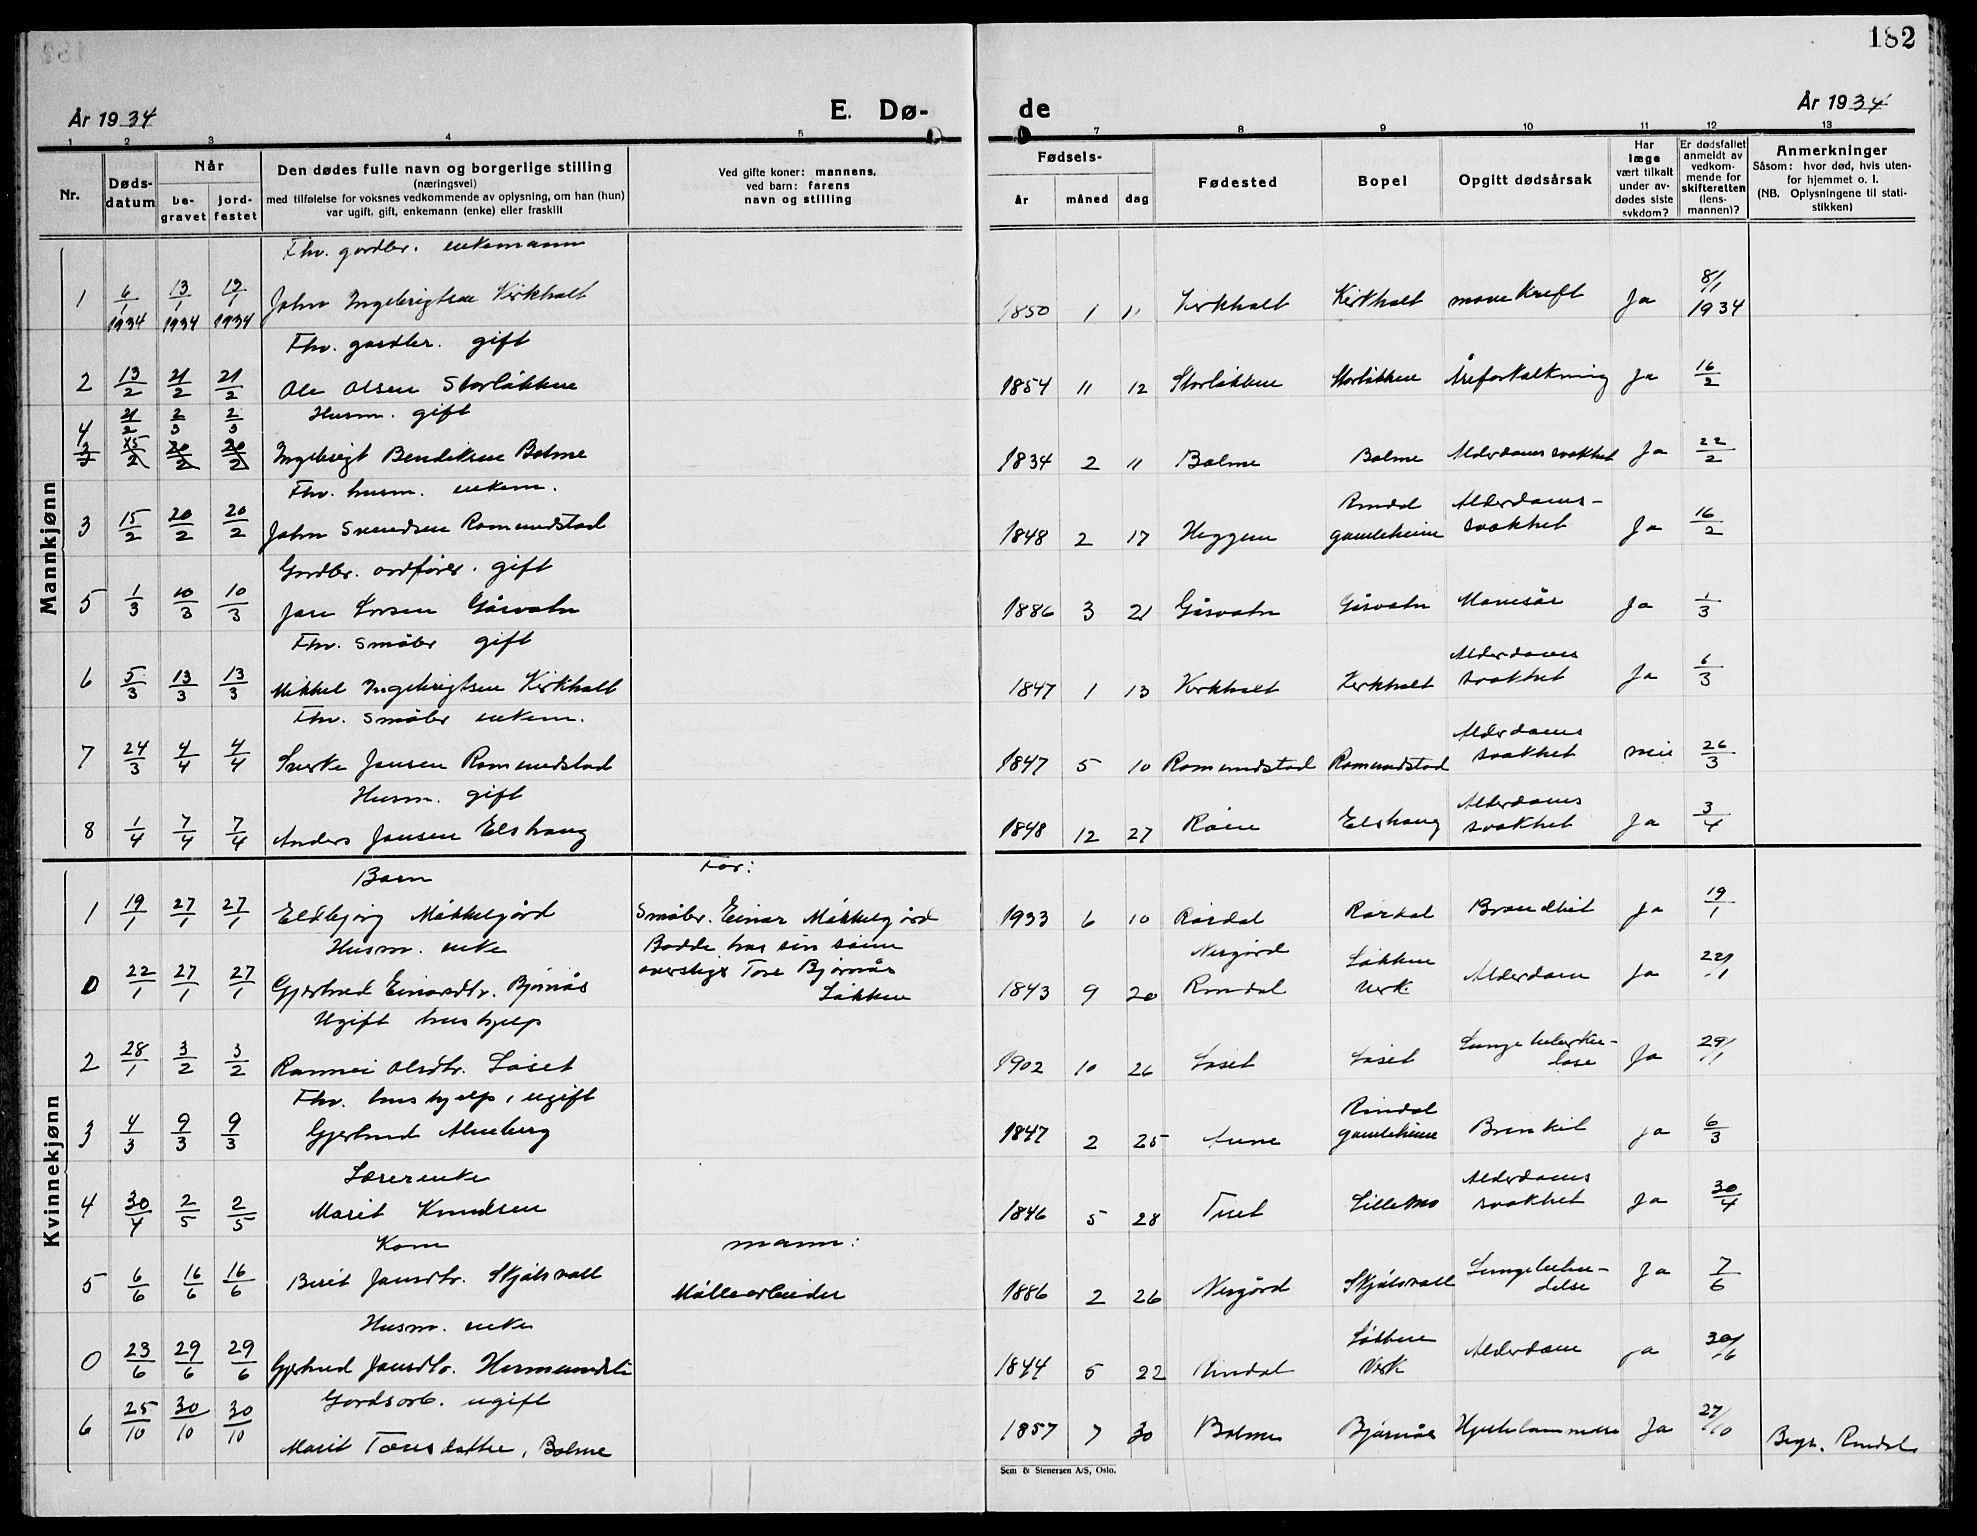 182
År 1934
E. Dø-
de
År 1934
1 2 3 4 5 7 8 9 10 11 12 13
Nr.
Døds-
datum
Når
be-
gravet
jord-
festet
Den dødes fulle navn og borgerlige stilling
(næringsvei)
med tilføielse for voksnes vedkommende av oplysning, om han (hun)
var ugift, gift, enkemann (enke) eller fraskill
Ved gifte koner: mannens,
ved barn: farens
navn og stilling
Fødsels-
år måned dag
Fødested
Bopel
Opgitt dødsårsak
Har
læge
vært tilkalt
under av-
dødes siste
sykdom?
Er dødsfallet
anmeldt av
vedkom-
mende for
skifteretten
(lens-
mannen)?
Anmerkninger
Såsom: hvor død, hvis uten-
for hjemmet o. l.
(NB. Oplysningene til stati-
stikken)
Mannkjønn
Fhv. gardbr. enkemann
1 6/1 1934 13/1 1934 13/1 1934 John Ingebrigtsen Kirkholt 1850 1 11 Kirkholt Kirkholt mavekreft Ja 8/1 1934
Fhv. gardbr. gift
2 13/2 21/2 21/2 Ole Olsen Storløkken 1854 11 12 Storløkken Storløkken Åreforkalkning Ja 16/2
Husm. gift
4 21/2 2/3 2/3
3 15/2 20/2 20/2 Ingebrigt Bendiksen Bolme 1834 2 11 Bolme Bolme Alderdomssvakhet Ja 22/2
Fhv. husm. enkem. Rindal Alderdoms-
3 15/2 20/2 20/2 John Svendsen Romundstad 1848 2 17 Heggem gamleheim svakhet Ja 16/2
Gardbr. ordfører. gift
5 1/3 10/3 10/3 Jon Larsen Gåsvatn 1886 3 21 Gåsvatn Gåsvatn Mavesår Ja 1/3
Fhv. småbr gift Alderdoms
6 5/3 13/3 13/3 Mikkel Ingebrigtsen Kirkholt 1847 1 13 Kirkholt Kirkholt svakhet Ja 6/3
Fhv. småbr enkem. Alderdoms
7 24/3 4/4 4/4 Sverke Jonsen Romundstad 1847 5 10 Romundstad Romundstad svakhet nei 26/3
Husm. gift Alderdoms
8 1/4 7/4 7/4 Anders Jonsen Elshaug 1848 12 27 Røen Elshaug svakhet Ja 3/4
Kvinnekjønn
Barn Far:
1 19/1 27/1 27/1 Eldbjørg Møkkelgård Småbr. Einar Møkkelgård 1933 6 10 Rørdal Rørdal Ja 19/1
Husm. enke Bodde hos sin sønn Nergård Løkken
0 22/1 27/1 27/1 Gjertrud Einarsdtr. Bjørnås Tore Bjørnås 1843 9 20 Rindal Verk. Alderdom Ja 22/1
Løkken
Ugift hushjelp
2 28/1 3/2 3/2 Olsdtr. Løset 1902 10 26 Løset Løset Lungetuberku-
lose Ja 29/1
Fhv. hushjelp, ugift Rindal
3 4/3 9/3 9/3 Gjertrud Almberg 1847 2 25 Aune gamleheim Ja 6/3
Lærerenke Alderdoms
4 30/4 2/5 2/5 Marit Knudsen 1846 5 28 Tuet Lillemo svakhet Ja 30/4
Kone mann:
5 6/6 16/6 16/6 Berit Jonsdtr. Skjølsvoll Møllearbeider 1886 2 26 Nergård Skjølsvoll Lungebeten-
delse Ja 7/6
Husm. enke Løkken
0 23/6 29/6 29/6 Gjertrud Jonsdtr. Hermundsli 1844 5 22 Rindal Verk Alderdom Ja 30/6
Gardsarb. ugift
6 25/10 30/10 30/10 Marit Toresdatter, Bolme 1857 7 30 Bolme Bjørnås Hjertelammelse Ja 27/10 Begr. Rindal
Sem & Stenersen A/S, Oslo.